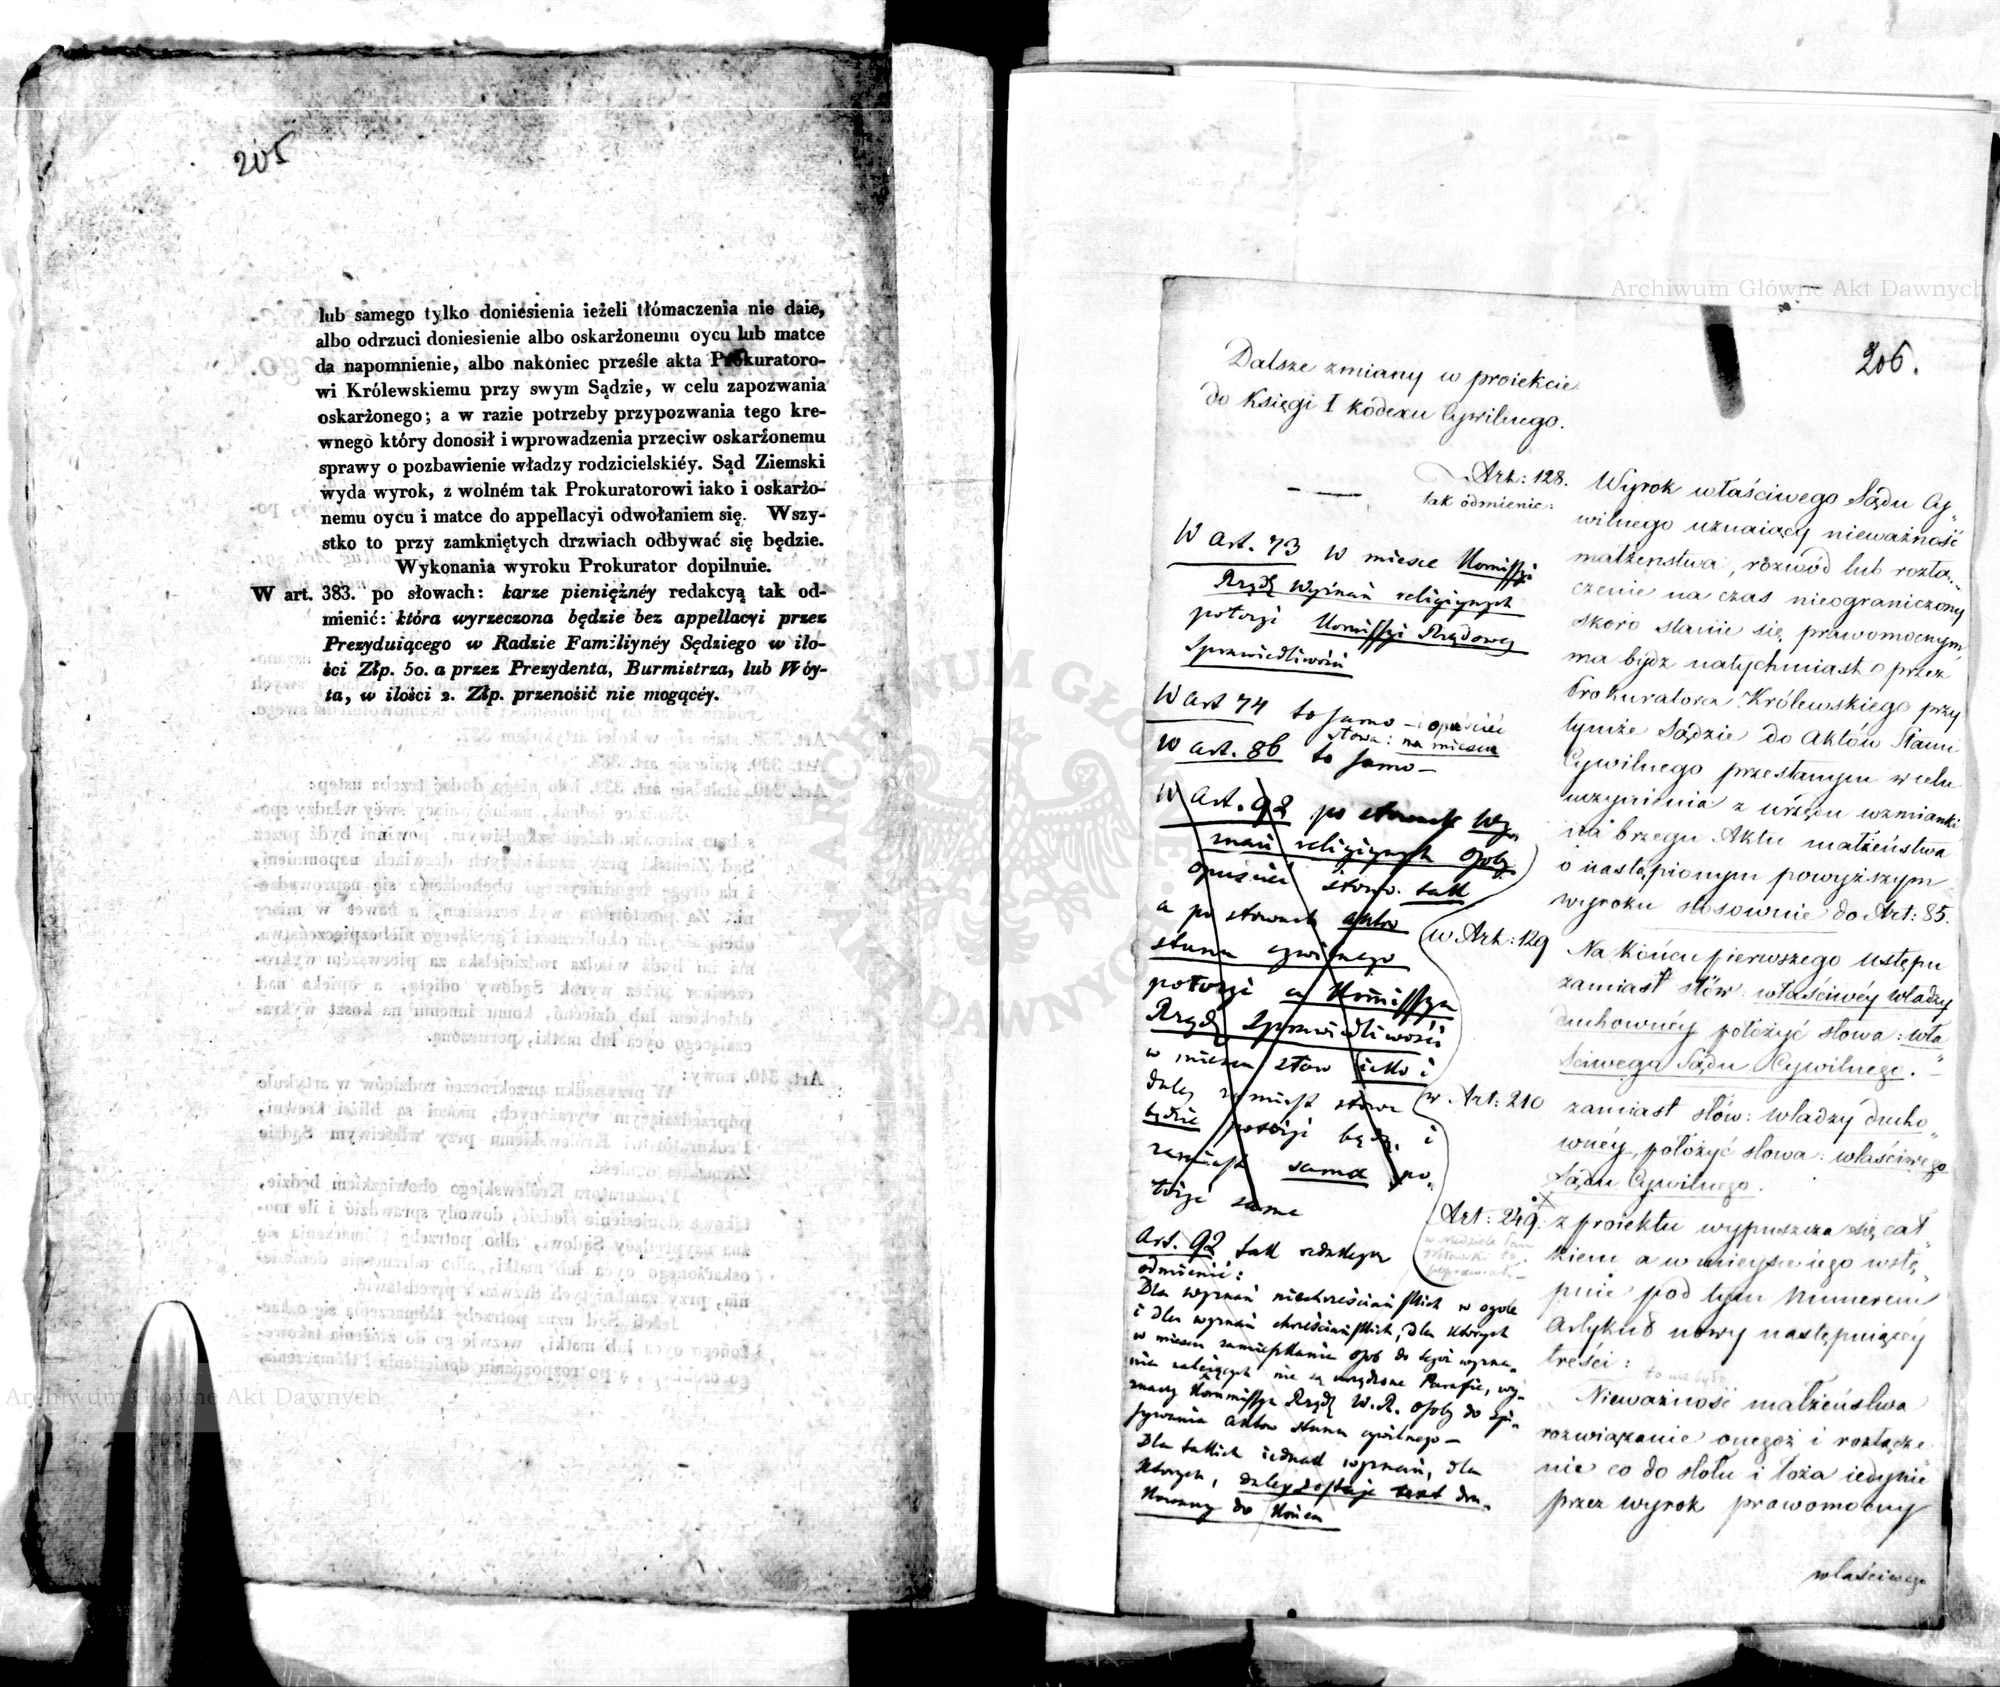 205
lub samego tylko doniesienia ieżeli tłómaczenia nie daie,
albo odrzuci doniesienie albo oskarżonemu oycu lub matce
da napomnienie, albo nakoniec prześle akta Prokuratoro-
wi Królewskiemu przy swym Sądzie, w celu zapozwania
oskarżonego; a w razie potrzeby przypozwania tego kre-
wnego który donosił i wprowadzenia przeciw oskarżonemu
sprawy o pozbawienie władzy rodzicielskiéy. Sąd Ziemski
wyda wyrok, z wolném tak Prokuratorowi iako i oskarżo-
nemu oycu i matce do appellacyi odwołaniem się. Wszy-
stko to przy zamkniętych drzwiach odbywać się będzie.
Wykonania wyroku Prokurator dopilnuie.
W art. 383. po słowach: karze pieniężnéy redakcyą tak od-
mienić: która wyrzeczona będzie bez appellacyi przez
Prezyduiącego w Radzie Familiynéy Sędziego w ilo-
ści Złp. 50. a przez Prezydenta, Burmistrza, lub Wóy-
ta, w ilości 2. Złp. przenosić nie mogącéy.
Archiwum Główne Akt Dawnych
206.
Dalsze zmiany w proiekcie
do Księgi I Kodexu Cywilnego.
W art. 73 w miesce Komissyi
Rządz Wyznań religiynych
położyć Komissyi Rządowey
Sprawiedliwości
W art 74 to samo – i opuścić
słowa: na miescu
W art. 86 to samo –
W art. 92 po słowach Wy
znań religiynych osoby
opuścić słowo tak
a po słowach aktow
stanu cywilnego
położyć a Komissya
Rządz Sprawiedliwości
w miesce słow iako i
daley zamiast słowa
będzie położyć będą, i
zamiast sama po
łożyć same
Art. 92 tak redakcya
odmienić:
Dla wyznań niechrześciańskich w ogole
i dla wyznań chrześciańskich, dla ktorych
w miescu zamieszkania osob do tegoż wyzna-
nia należących nie są urządzone Parafie, wy-
znaczy Kommissya Rządz W. R. osoby do spi-
sywania aktow stanu cywilnego –
Dla takich iednak wyznań, dla
ktorych, daley zostaje text dru-
kowany do końca
Art: 128.
tak odmienic:
Wyrok właściwego Sądu Cy-
wilnego uznaiący nieważność
małżenstwa, rozwód lub rozłą-
czenie na czas nieograniczony
skoro stanie się prawomocnym,
ma bydź natychmiast przez
Prokuratora Królewskiego przy
tymże Sądzie do Aktów Stanu
Cywilnego przesłanym w celu
uczynienia z urzędu wzmianki
na brzegu Aktu małżeństwa
o nastąpionym powyższym
wyroku stosownie do Art: 85.
w Art: 129
Na końcu pierwszego ustępu
zamiast słów: właściwéy władzy
duchownéy położyć słowa: wła-
ściwego Sądu Cywilnego.
w Art: 210
zamiast słów: władzy ducho-
wnéy, położyć słowa: właściwego
Sądu Cywilnego.
Art: 249.
z proiektu wypuszcza się cał-
kiem a w mieysce iego wstę-
puie pod tym Numerem
Artykuł nowy następuiącéy
treści:
Nieważność małżeństwa
rozwiązanie onegoż i rozłącze-
nie co do stołu i łoża iedynie
przez wyrok prawomocny
właściwego
Archiwum Główne Akt Dawnych
ARCHIWUM GŁÓWNE AKT DAWNYCH